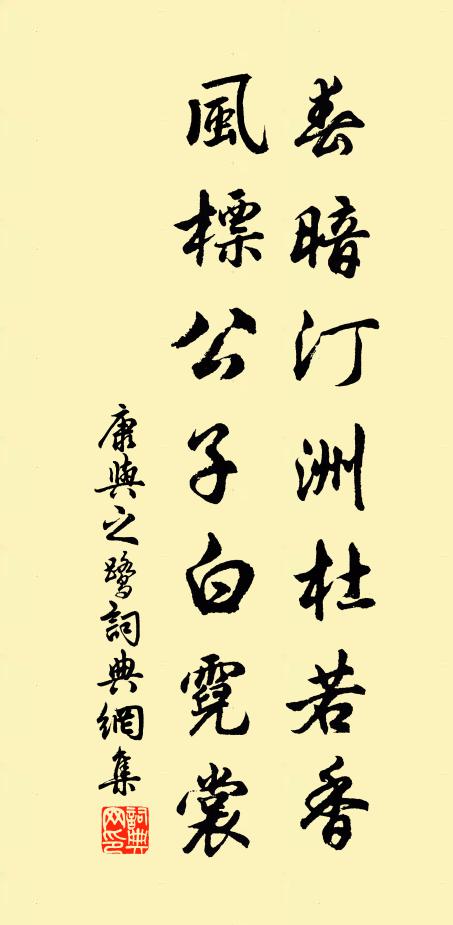 春暗汀洲杜若香
風標公子白霓裳
康與之鷺詞典網集
詞典網印